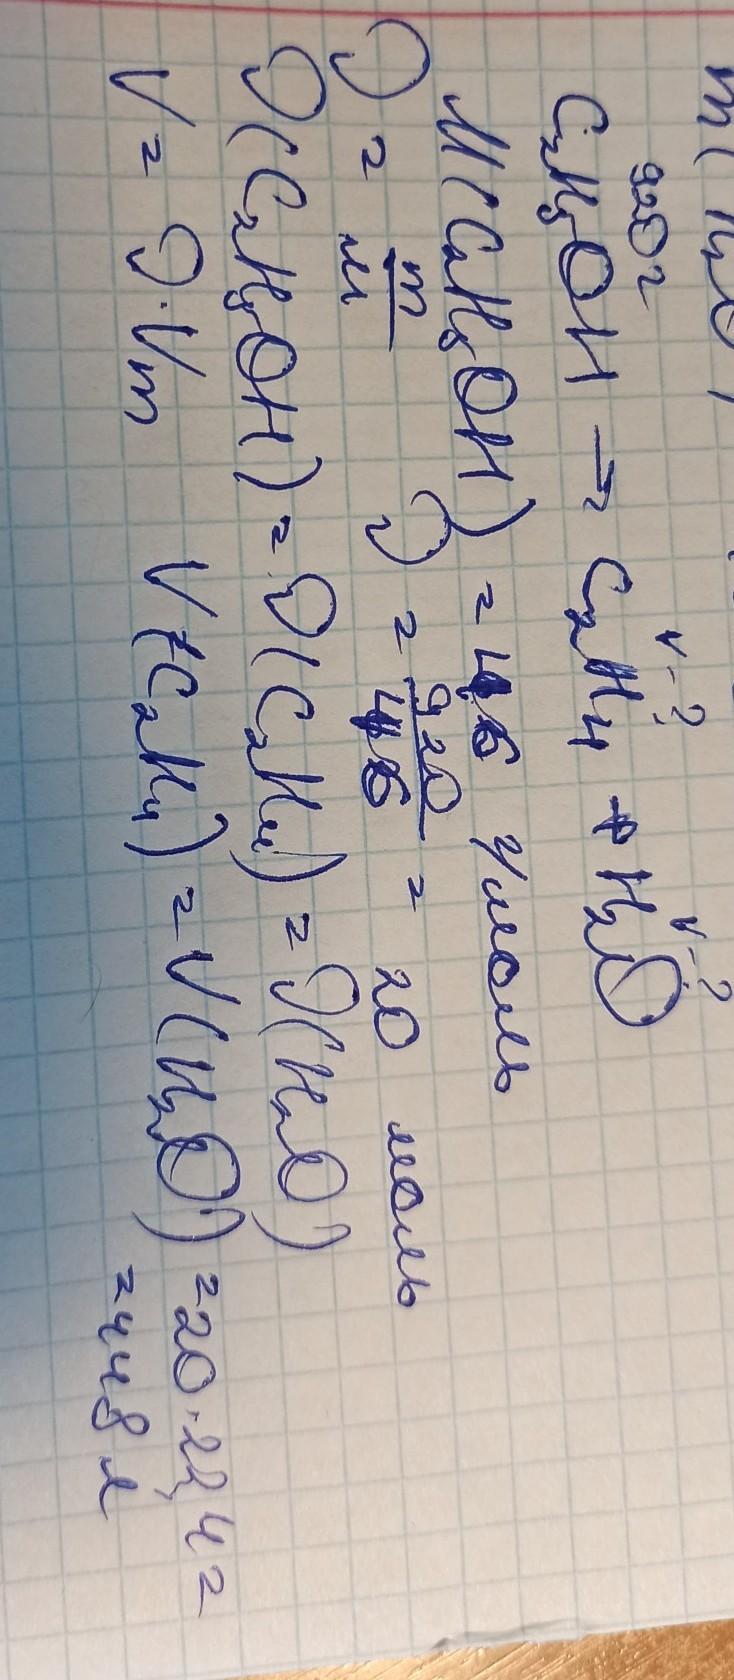 m( H₂O)
920г V-? V-?
C₂H₅OH → C₂H₄ + H₂O
M(C₂H₅OH) = 46 г/моль
ν = m/M ν = 920/46 = 20 моль
ν(C₂H₅OH) = ν(C₂H₄) = ν(H₂O)
V = ν·Vm V(C₂H₄) = V(H₂O) = 20·22,4 =
= 448 л